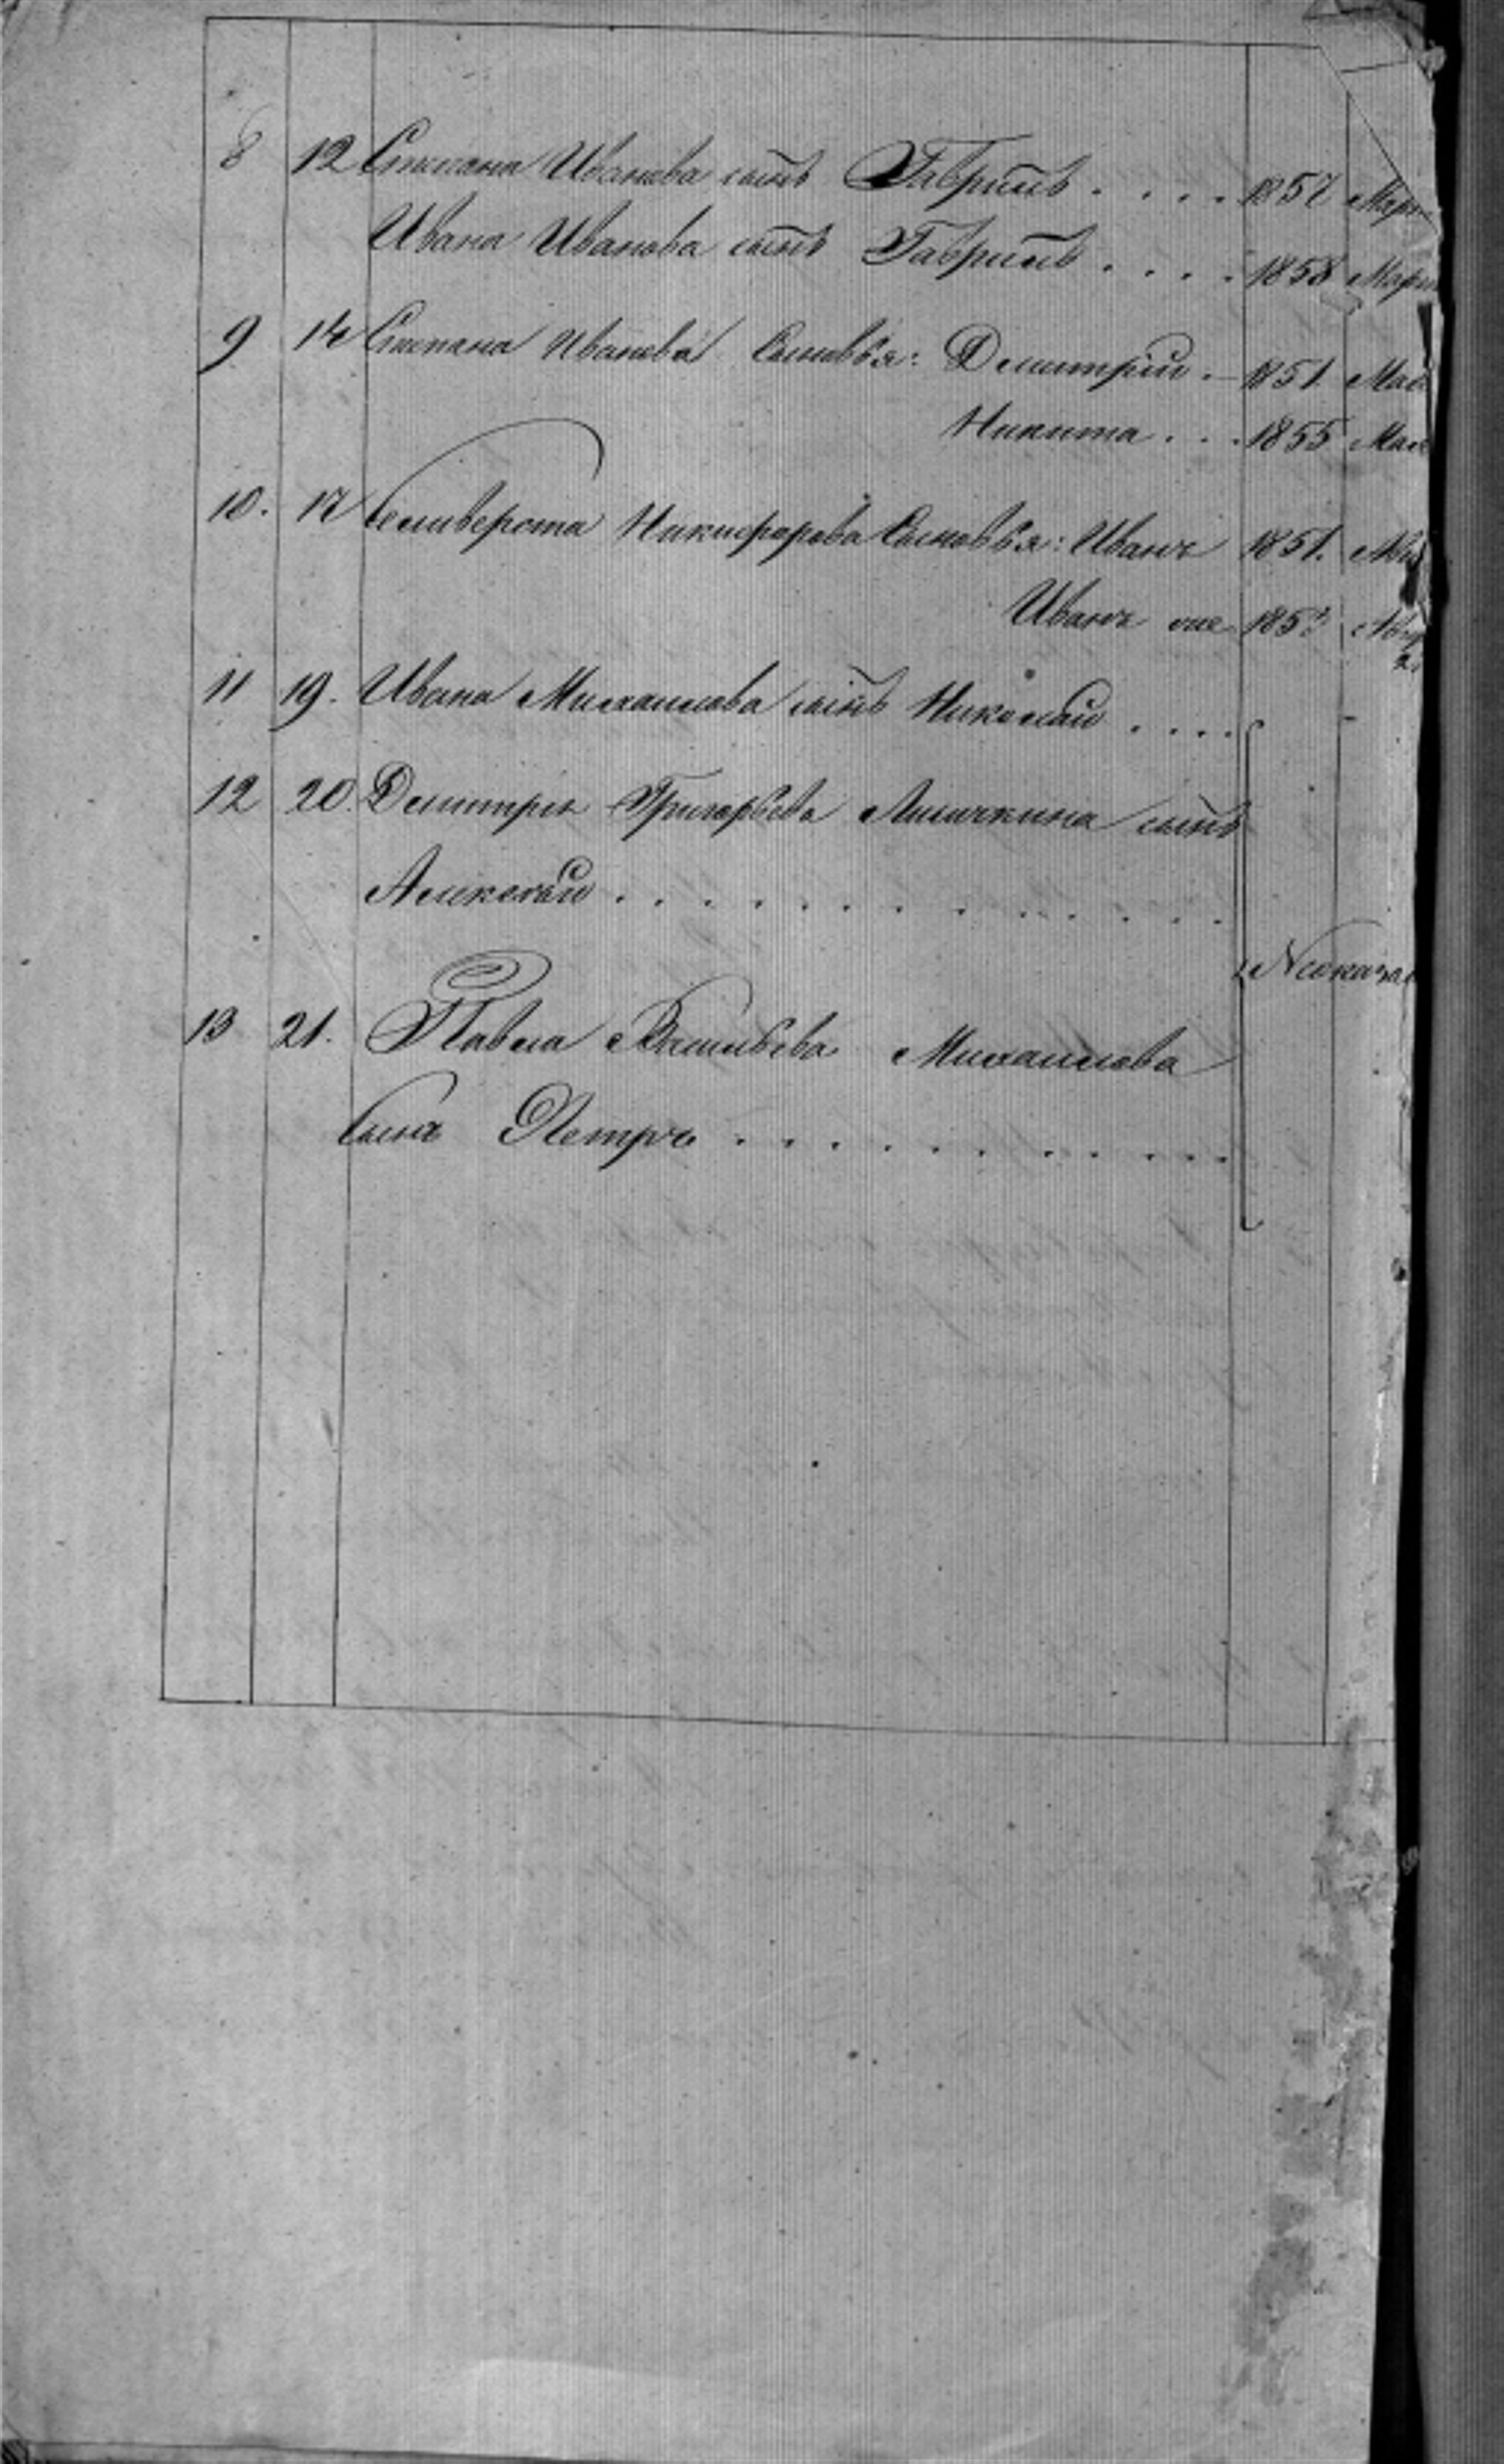 8 12 Степана Иванова сынъ Гаврилъ . . . . 1857 Мар
Ивана Иванова сынъ Гаврилъ . . . . 1858 Мар
9 14 Степана Иванова Сыновья: Димитрій . 1851.
Никита . . . 1855
10. 17 Селиверста Никифорова Сыновья: Иванъ 1851.
Иванъ же
11 19. Ивана Михаилова сынъ Николай . . . .
12 20. Димитрія Григорьева сынъ
Алексѣй . . . . . . . . . . . .
Непоказа
13 21. Павла Васильева Михаилова
сына Петръ . . . . . . . . . .